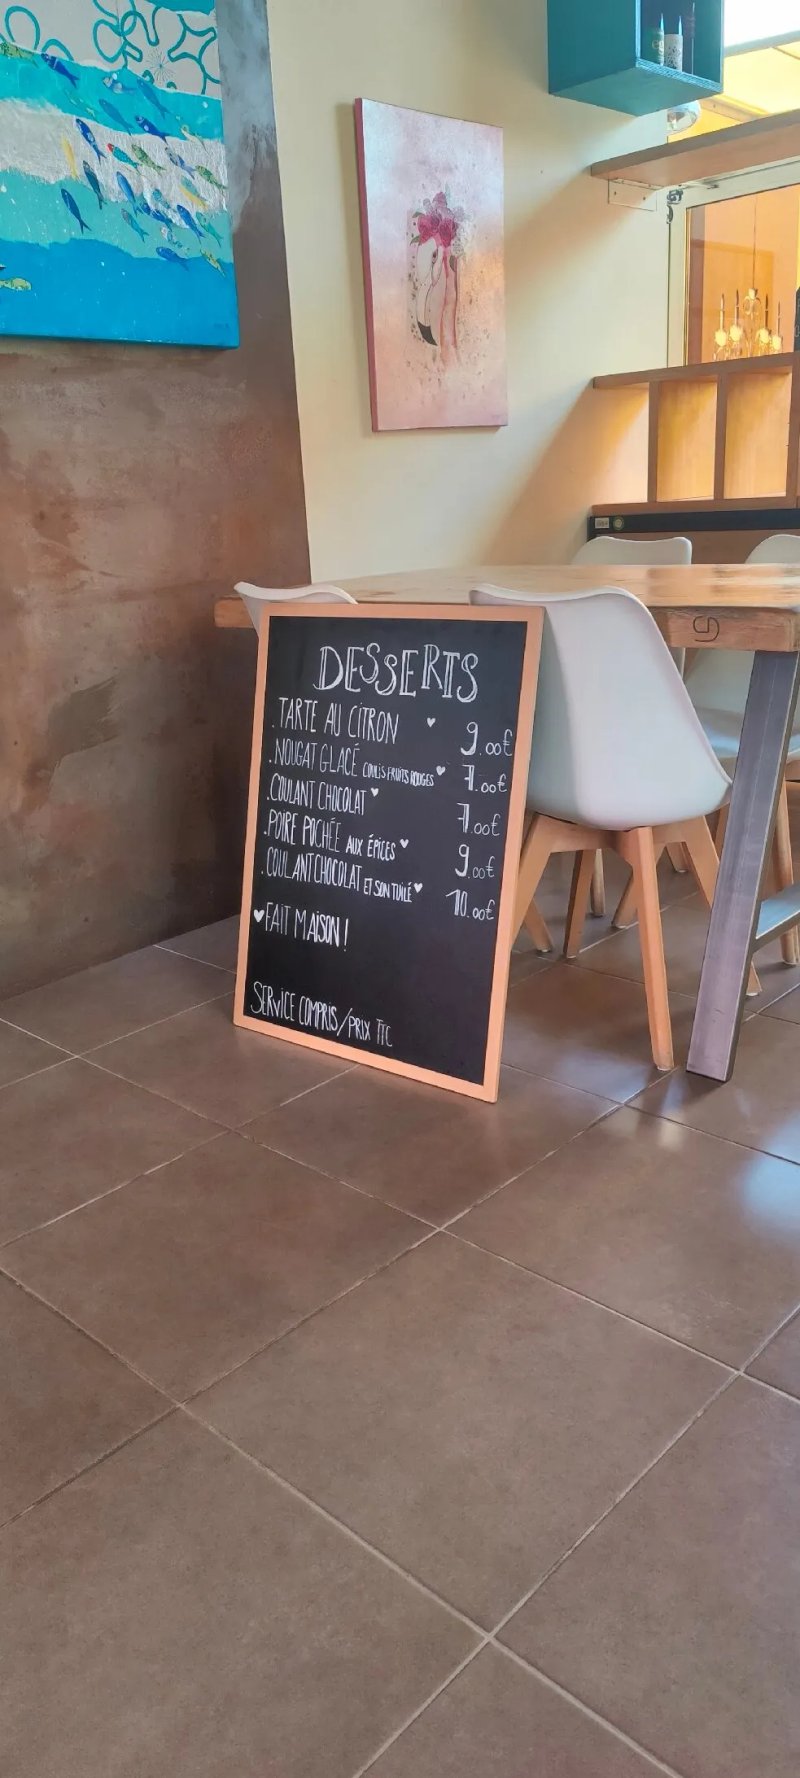 DESSERTS
. TARTE AU CITRON ♥ 9.00€
. NOUGAT GLACÉ COULIS FRUITS ROUGES ♥ 7.00€
. COULANT CHOCOLAT ♥ 7.00€
. POIRE POCHÉE AUX ÉPICES ♥ 9.00€
. COULANT CHOCOLAT ET SON TUILÉ ♥ 10.00€
♥ FAIT MAISON !
SERVICE COMPRIS/PRIX TTC